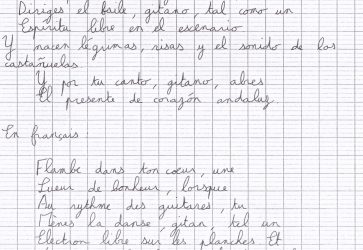 Diriges el baile, gitano, tal como un
Espíritu libre en el escenario
Y nacen légrimas, risas y el sonido de las
castañuelas.
Y por tu canto, gitano, abres
El presente de corazón andaluz.
En français :
Flambe dans ton cœur, une
Lueur de bonheur, lorsque
Au rythme des guitares, tu
Mènes la danse, gitan, tel un
Électron libre sur les planches. Et